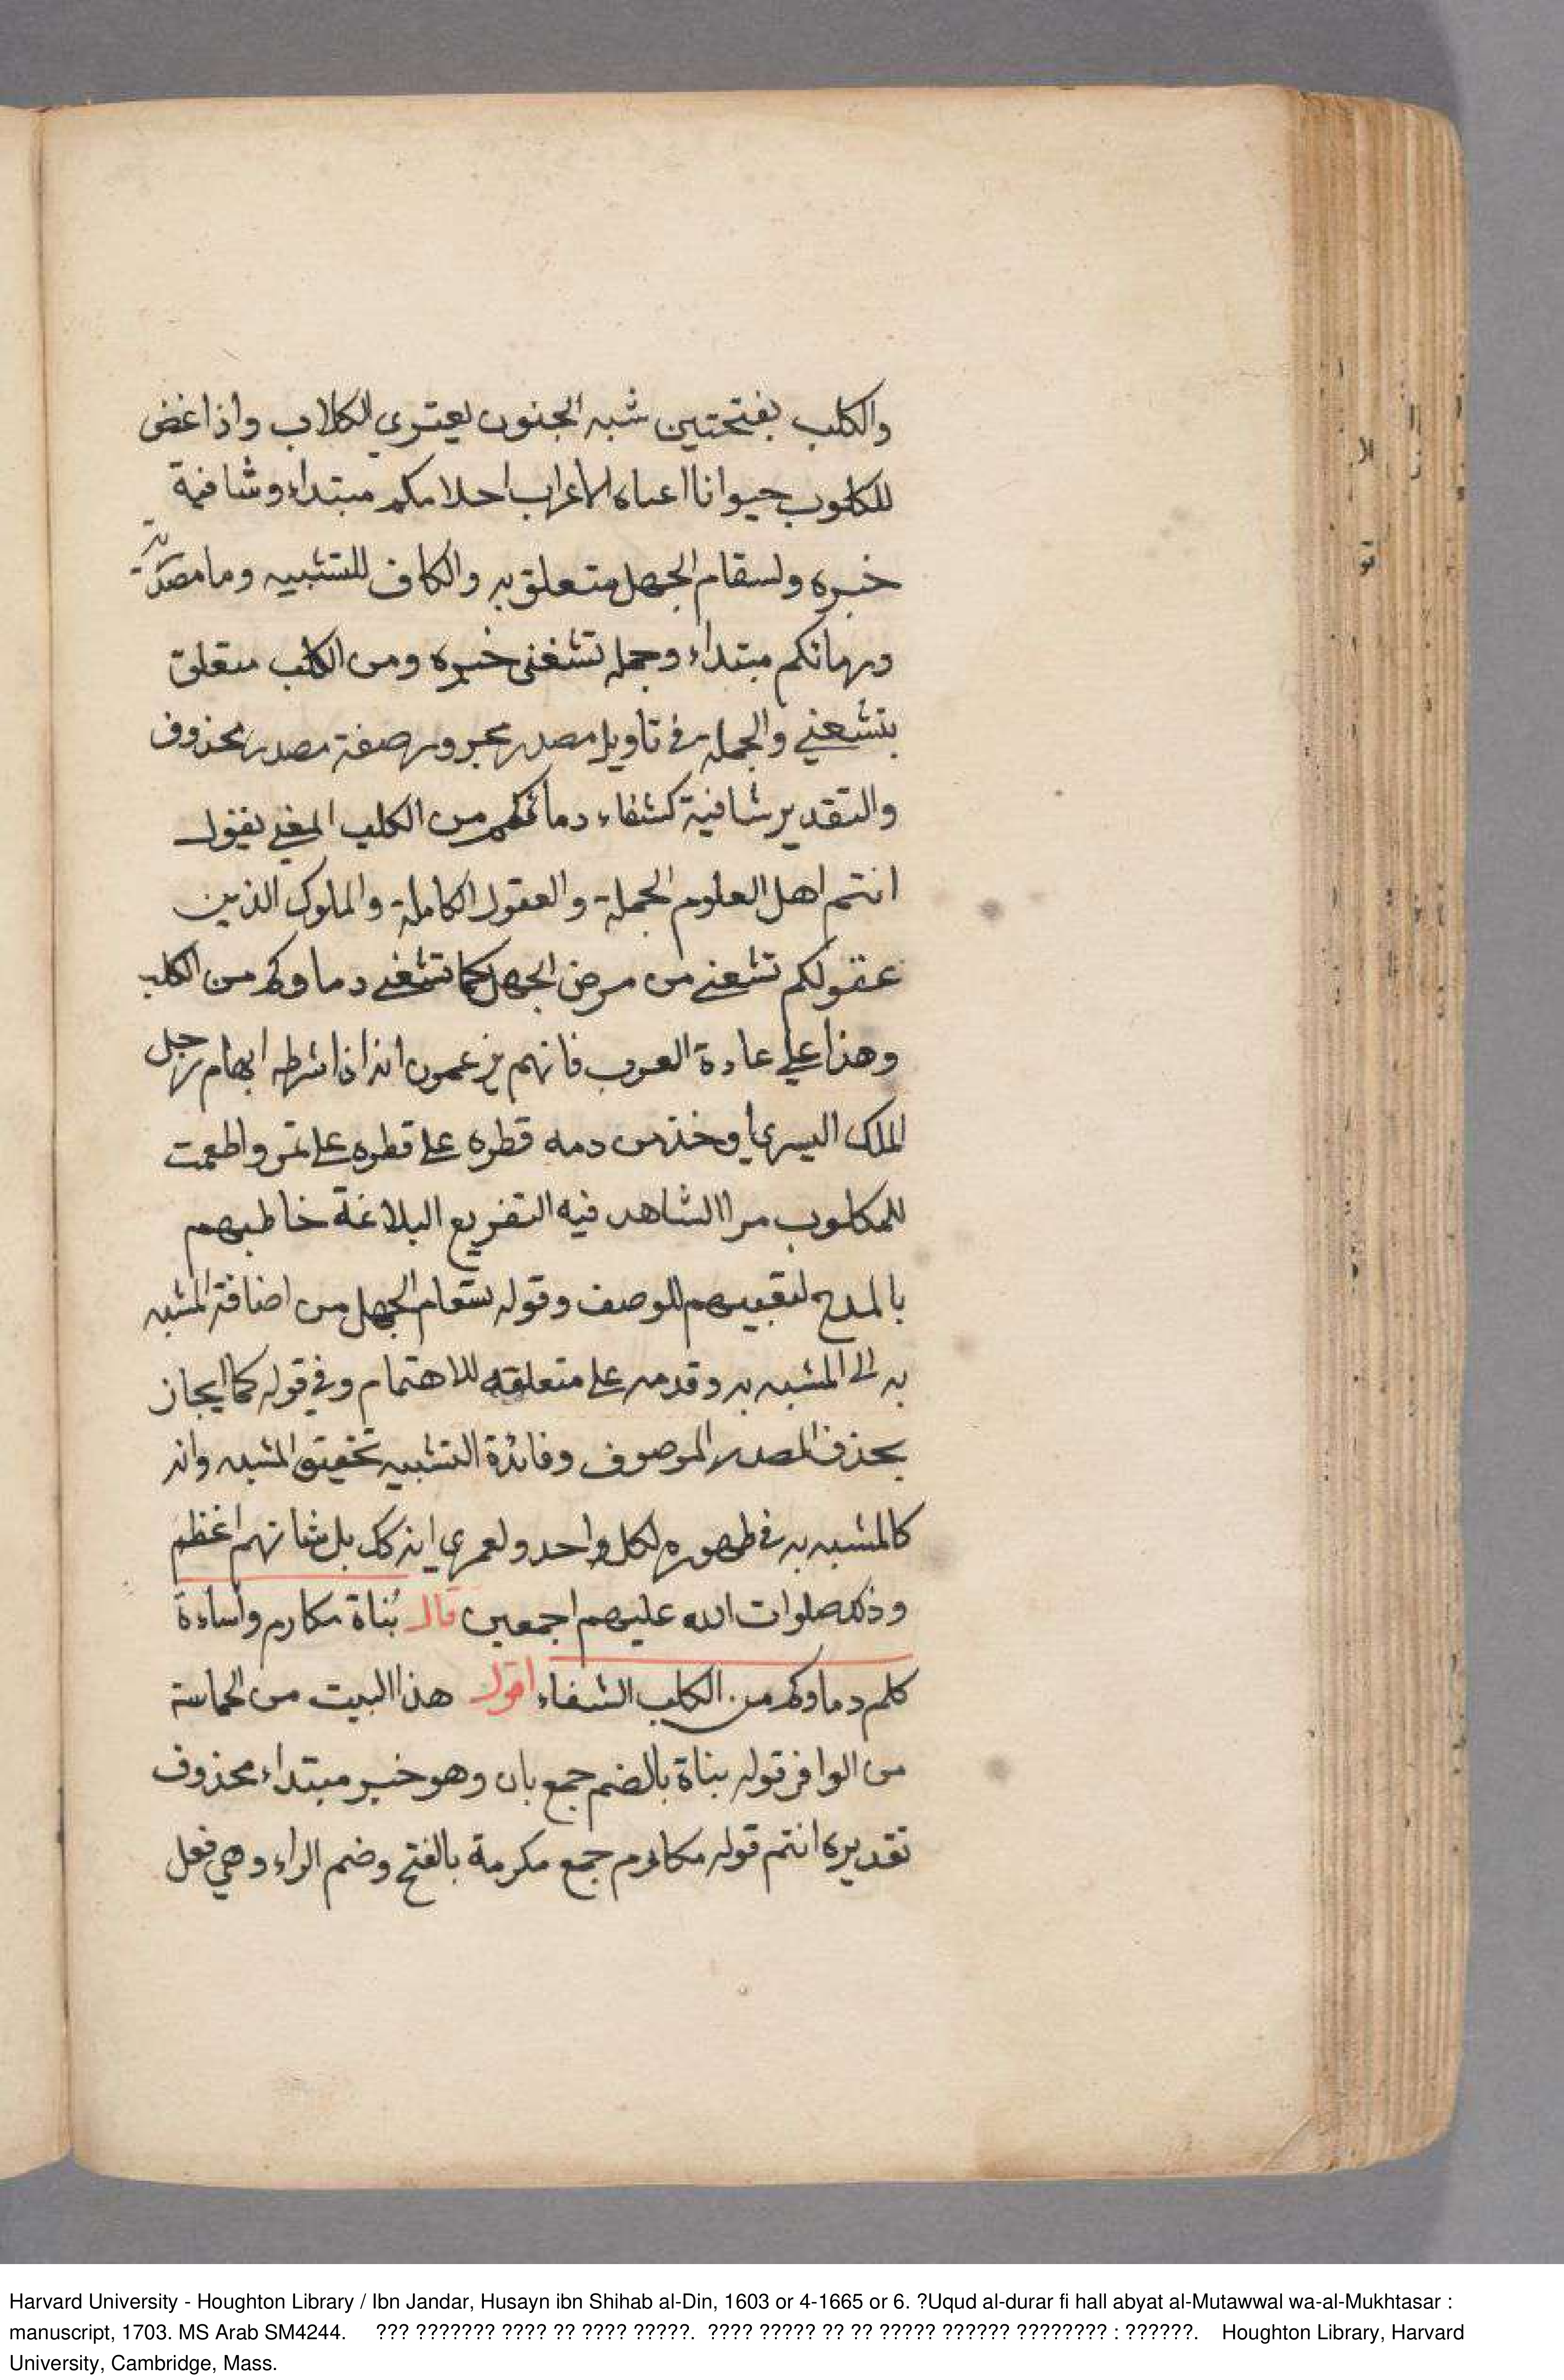 والكلب بفتحتين شبه الجنون يعتري الكلاب واذا عض
للكلوب حيوانا اعياه الاعراب احلامكم مبتداء وشافية
خبره ولسقام الجهل متعلق به والكاف للتشبيه وما مصدرية
ودمائكم مبتداء وجمله تشفى خبره ومن الكلب متعلق
بتشفي والجملة في تاويل مصدر مجرور صفة مصدر محذوف
والتقدير شافية كشفاء دمائكم من الكلب المعنى يقول
انتم اهل العلوم الجملة والعقول الكاملة والملوك الذين
عقولكم تشفى من مرض الجهل كما تشفى دماوكم من الكلب
وهذا على عادة العرب فانهم يزعمون انه اذا شرط ابهام رجل
الملك اليسرى واخذ من دمه قطره على قطره على تمر واطعمت
للمكلوب مرا الشاهد فيه التفريع البلاغة خاطبهم
بالمدح الوصف وقوله لسقام الجهل من اضافة المشبه
به الى المشبه به وقدمه على متعلقه للاهتمام وفي قوله كما ايجاز
بحذف المصدر الموصوف وفائدة التشبيه تحقيق المشبه وانه
كالمشبه به في ظهوره لكل واحد ولعمري انه كك بل شانهم اعظم
وذلك صلوات الله عليهم اجمعين قال بُناة مكارم واساءة
كلم دماوكم من الكلب الشفاء اقول هذا البيت من الحماسة
من الوافر قوله بناة بالضم جمع بان وهو خبر مبتداء محذوف
تقديره انتم قوله مكارم جمع مكرمة بالفتح وضم الراء وهي فعل
Harvard University - Houghton Library / Ibn Jandar, Husayn ibn Shihab al-Din, 1603 or 4-1665 or 6. ?Uqud al-durar fi hall abyat al-Mutawwal wa-al-Mukhtasar :
manuscript, 1703. MS Arab SM4244. ??? ??????? ???? ?? ???? ?????. ???? ????? ?? ?? ????? ?????? ???????? : ??????. Houghton Library, Harvard
University, Cambridge, Mass.